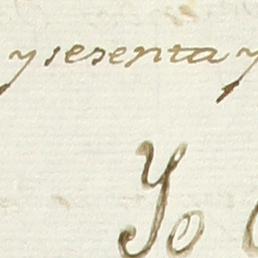 y sesenta y
Yo